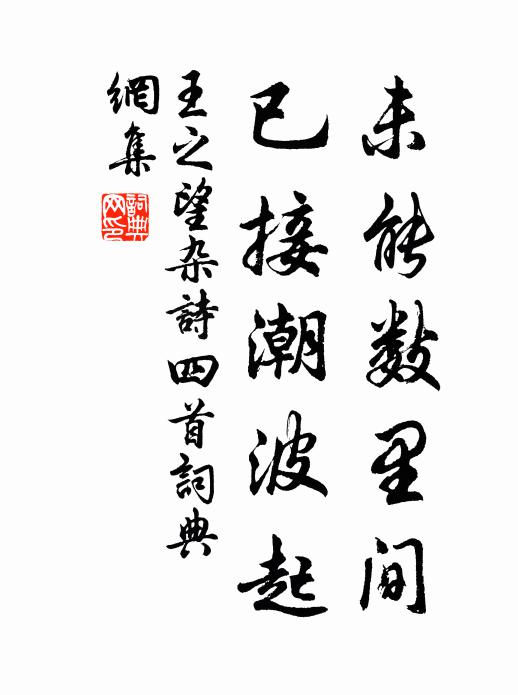 未能数里间
已接潮波起
王之望杂詩四首詞典
網集
詞典
网印